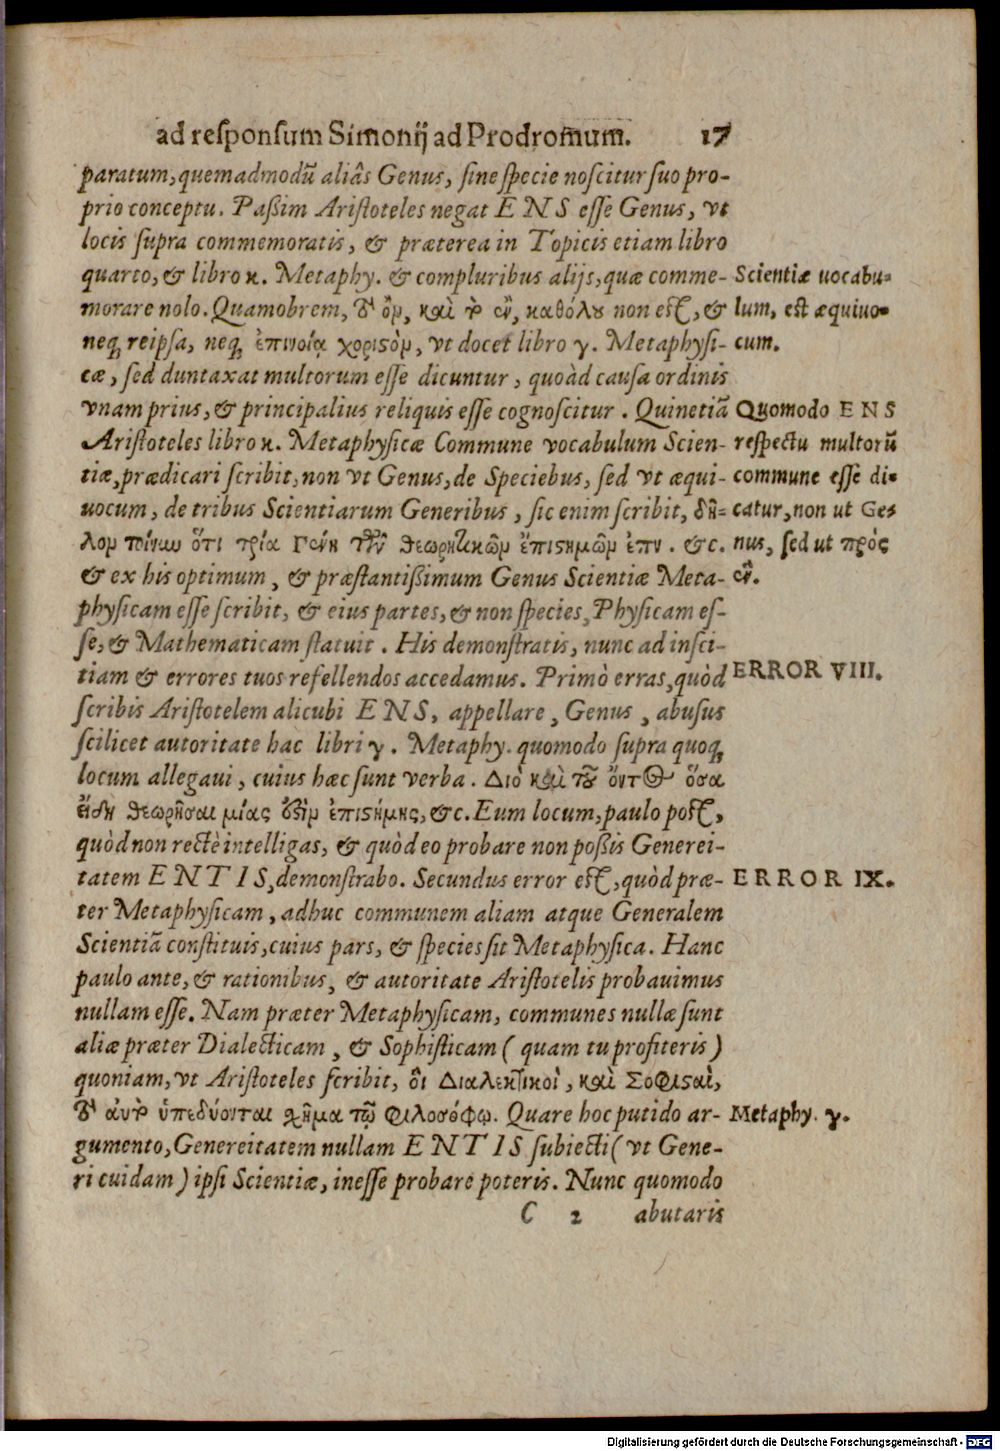 ad reſponſum Simonij ad Prodromum. 17
paratum, quemadmodũ aliâs Genus, ſine ſpecie noſcitur ſuo pro-
prio conceptu. Paßim Ariſtoteles negat ENS eſſe Genus, vt
locis ſupra commemoratis, & præterea in Topicis etiam libro
quarto, & libro κ. Metaphy. & compluribus alijs, quæ comme-
morare nolo. Quamobrem, τὸ ὂν, καὶ τὸ ἓν, καθόλου non eſt, &
neq; reipſa, neq; ἐπινοίᾳ χοριϛὸν, vt docet libro γ. Metaphyſi-
cæ, ſed duntaxat multorum eſſe dicuntur, quoàd cauſa ordinis
vnam prius, & principalius reliquis eſſe cognoſcitur. Quinetiã
Ariſtoteles libro κ. Metaphyſicæ Commune vocabulum Scien-
tiæ, prædicari ſcribit, non vt Genus, de Speciebus, ſed vt æqui-
uocum, de tribus Scientiarum Generibus, ſic enim ſcribit, δῆ-
λον τοίνυν ὅτι τρία Γένη τῶν θεωρητικῶν ἐπιϛημῶν &c.
& ex his optimum, & præſtantißimum Genus Scientiæ Meta-
phyſicam eſſe ſcribit, & eius partes, & non ſpecies, Phyſicam eſ-
ſe, & Mathematicam ſtatuit. His demonſtratis, nunc ad inſci-
tiam & errores tuos refellendos accedamus. Primò erras, quòd
ſcribis Ariſtotelem alicubi ENS, appellare, Genus, abuſus
ſcilicet autoritate hac libri γ. Metaphy. quomodo ſupra quoq;
locum allegaui, cuius hæc ſunt verba. Διὸ καὶ τοῦ ὄντος ὅσα
εἴδη θεωρῆσαι μίας ὁϛὶν ἐπιϛήμης, &c. Eum locum, paulo poſt,
quòd non rectè intelligas, & quòd eo probare non poßis Generei-
tatem ENTIS, demonſtrabo. Secundus error eſt, quòd præ-
ter Metaphyſicam, adhuc communem aliam atque Generalem
Scientiã conſtituis, cuius pars, & ſpecies ſit Metaphyſica. Hanc
paulo ante, & rationibus, & autoritate Ariſtotelis probauimus
nullam eſſe. Nam præter Metaphyſicam, communes nullæ ſunt
aliæ præter Dialecticam, & Sophiſticam ( quam tu profiteris )
quoniam, vt Ariſtoteles ſcribit, ὁι Διαλεκτικοὶ, καὶ Σοφιϛαὶ,
τὸ ἀυτὸ ὑπεδύονται χῆμα τῷ φιλοσόφῳ. Quare hoc putido ar-
gumento, Genereitatem nullam ENTIS ſubiecti ( vt Gene-
ri cuidam ) ipſi Scientiæ, ineſſe probare poteris. Nunc quomodo
C 2 abutaris
Scientiæ uocabu-
lum, est æquiuo-
cum.
Quomodo ENS
reſpectu multorũ
commune eſſe di-
catur, non ut Ge-
nus, ſed ut πρός
ἓν.
ERROR VIII.
ERROR IX.
Metaphy. γ.
Digitalisierung gefördert durch die Deutsche Forschungsgemeinschaft - DFG